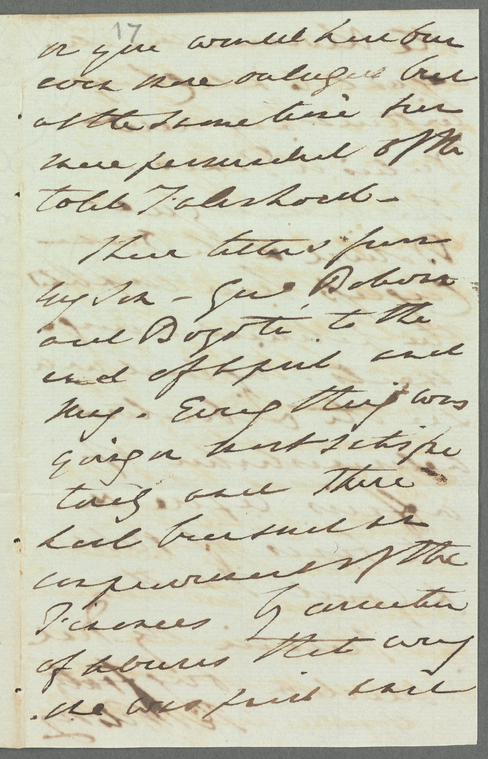 17
or you would have been
even more outrageous but
at the same time
more persuaded of the
total Falsehood -
I have letters from
my Son - Genl Bolivar
and Bogotá to the
end of April and
May. Every thing was
going on most satisfac
torily and there
had been such an
improvement of the
Finances by correction
of abuses that every
one was paid and